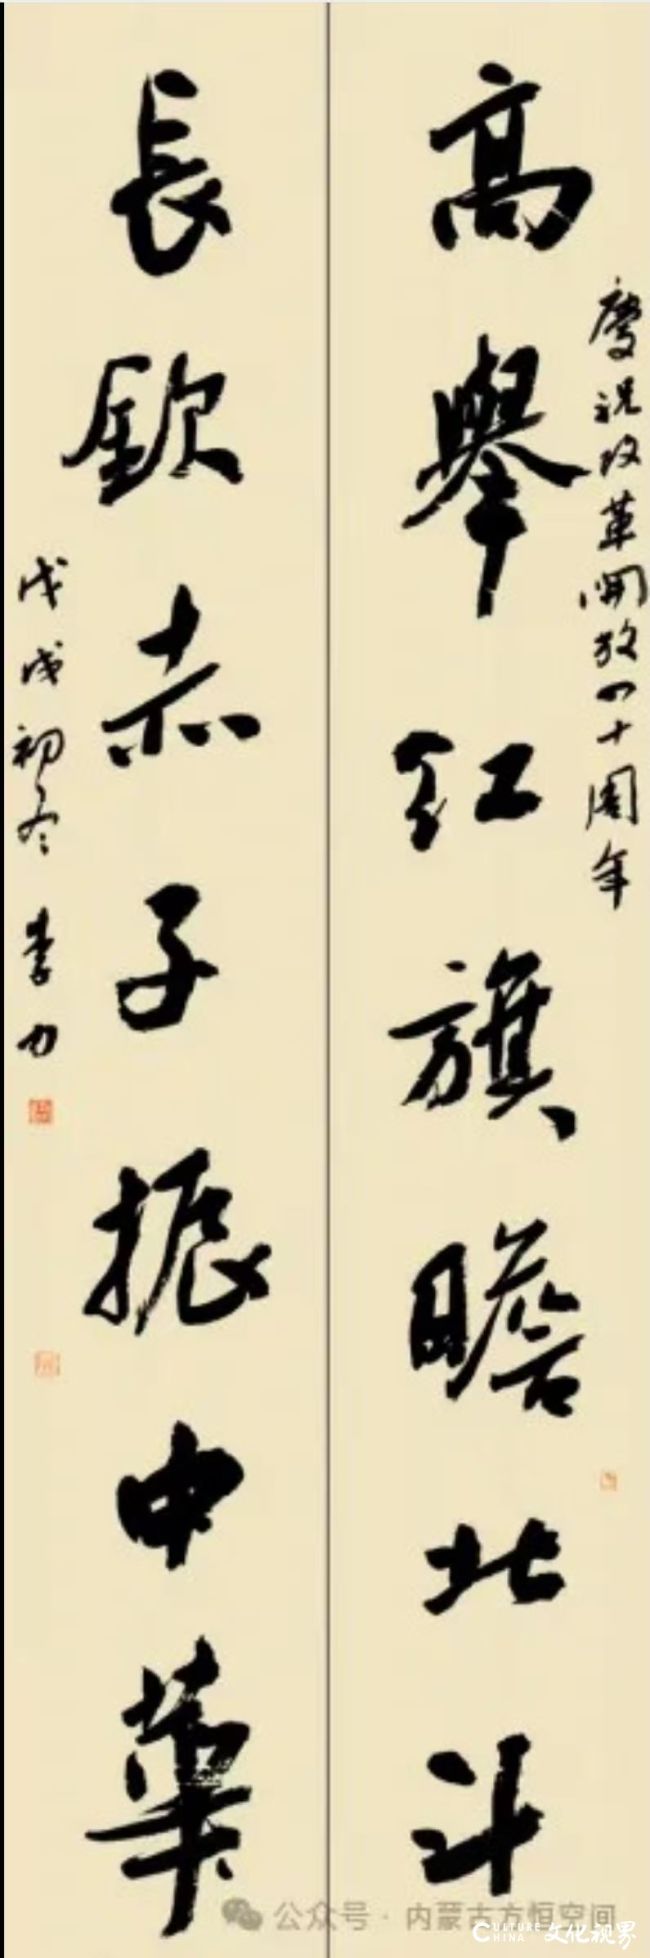 慶祝改革開放四十周年
高舉紅旗瞻北斗
長欽赤子振中華
戊戌初冬 李力
公众号·内蒙古方恒空间
CULTURE CHINA 文化视界